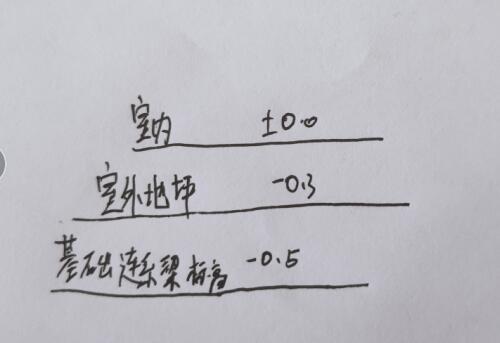 室内 ±0.0
室外地坪 -0.3
基础连系梁标高 -0.5